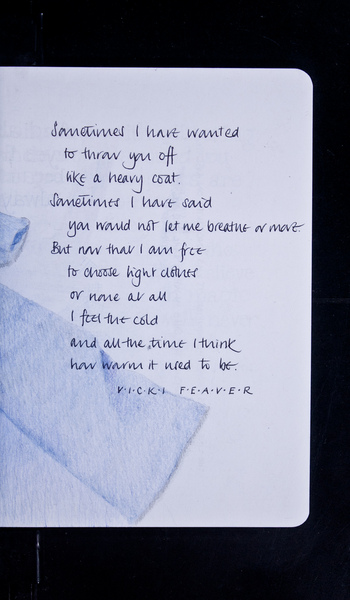 Sometimes I have wanted
to throw you off
like a heavy coat.
Sometimes I have said
you would not let me breathe or move.
But now that I am free
to choose light clothes
or none at all
I feel the cold
and all the time I think
how warm it used to be.
V·I·C·K·I F·E·A·V·E·R